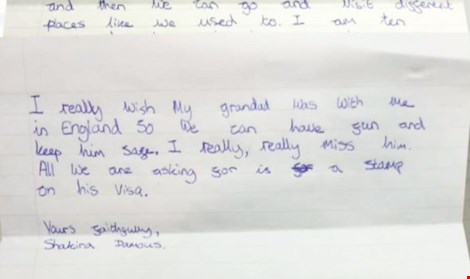 and then we can go and visit different
places like we used to. I am ten
I really wish my grandad was with me
in England so we can have fun and
keep him safe. I really, really miss him.
All we are asking for is a stamp
on his visa.
Yours faithfully,
Shakira